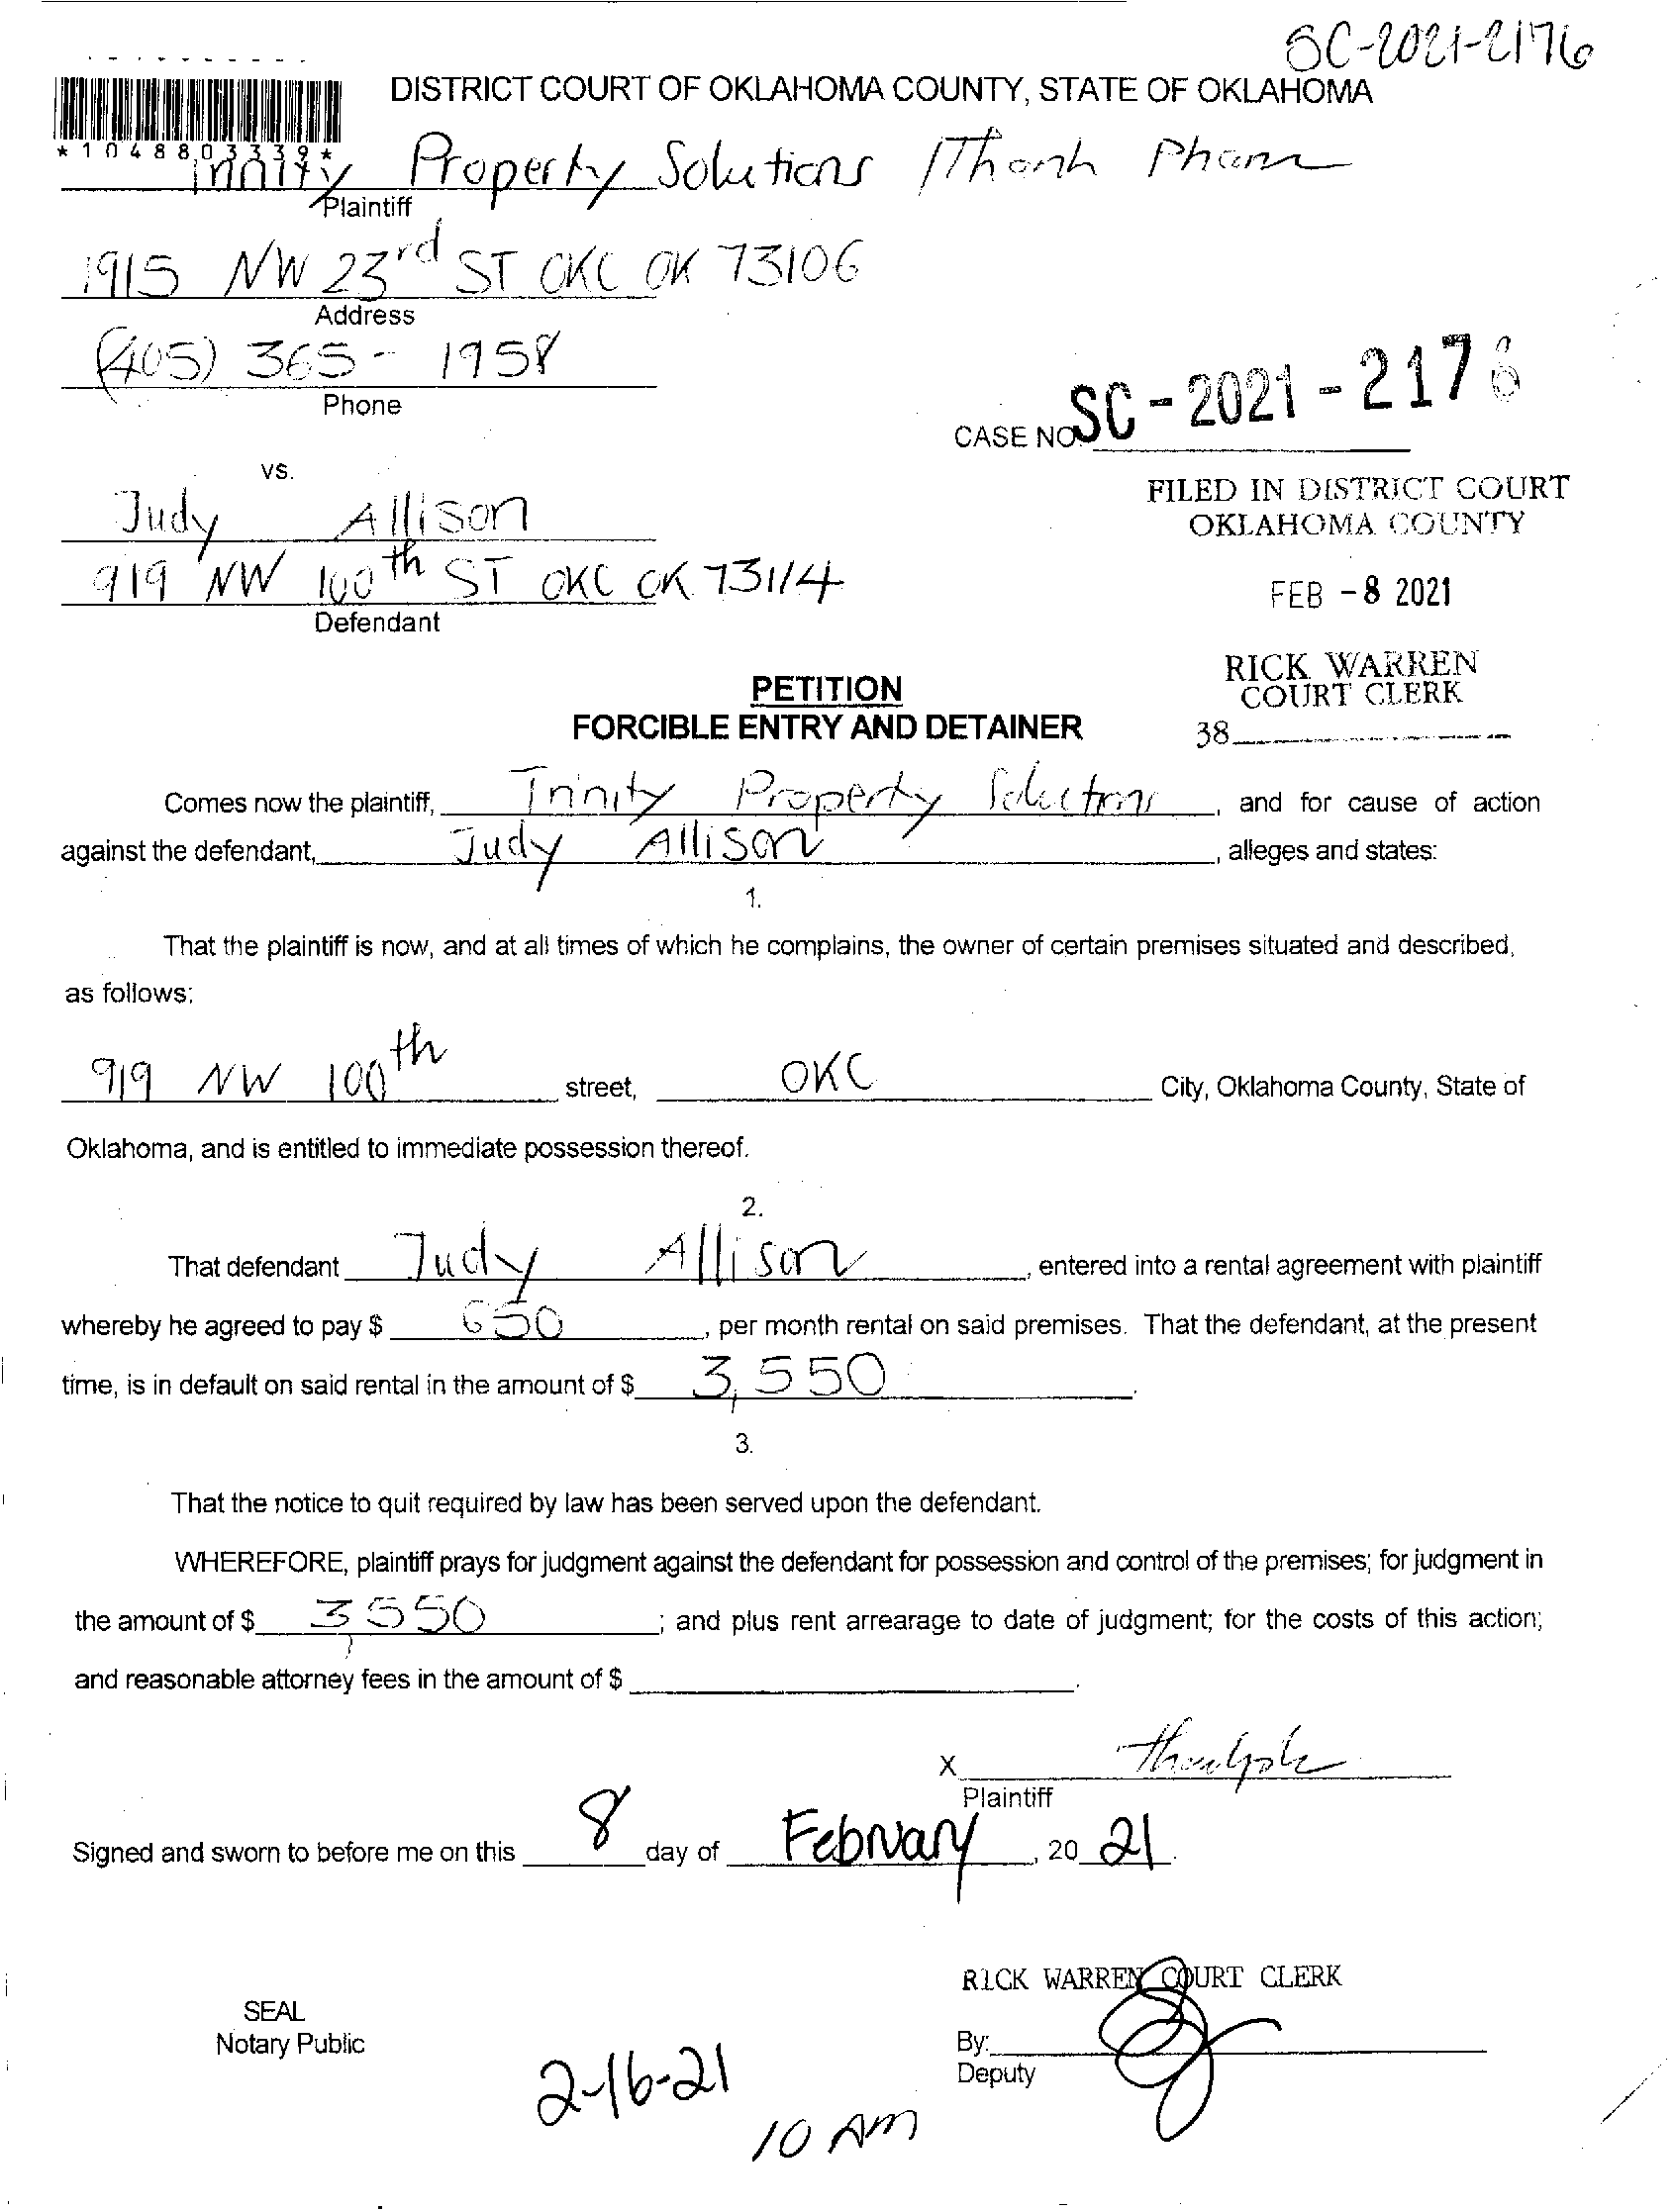 SC-2021-2176
DISTRICT COURT OF OKLAHOMA COUNTY, STATE OF OKLAHOMA
* 1 0 4 8 8 0 3 3 3 9 *
Trinity Property Solutions / Thanh Pham
Plaintiff
1915 NW 23rd ST OKC OK 73106
Address
(405) 365 - 1958
Phone
CASE NO. SC - 2021 - 2176
vs.
FILED IN DISTRICT COURT
OKLAHOMA COUNTY
Judy Allison
919 NW 100th ST OKC OK 73114
Defendant
FEB - 8 2021
RICK WARREN
COURT CLERK
38
PETITION
FORCIBLE ENTRY AND DETAINER
Comes now the plaintiff, Trinity Property Solutions, and for cause of action
against the defendant, Judy Allison, alleges and states:
1.
That the plaintiff is now, and at all times of which he complains, the owner of certain premises situated and described,
as follows:
919 NW 100th street, OKC City, Oklahoma County, State of
Oklahoma, and is entitled to immediate possession thereof.
2.
That defendant Judy Allison, entered into a rental agreement with plaintiff
whereby he agreed to pay $ 650, per month rental on said premises. That the defendant, at the present
time, is in default on said rental in the amount of $ 3,550.
3.
That the notice to quit required by law has been served upon the defendant.
WHEREFORE, plaintiff prays for judgment against the defendant for possession and control of the premises; for judgment in
the amount of $ 3,550; and plus rent arrearage to date of judgment; for the costs of this action;
and reasonable attorney fees in the amount of $ .
X
Plaintiff
Signed and sworn to before me on this 8 day of February, 20 21.
RICK WARREN COURT CLERK
SEAL
Notary Public
By:
Deputy
2-16-21
10 AM